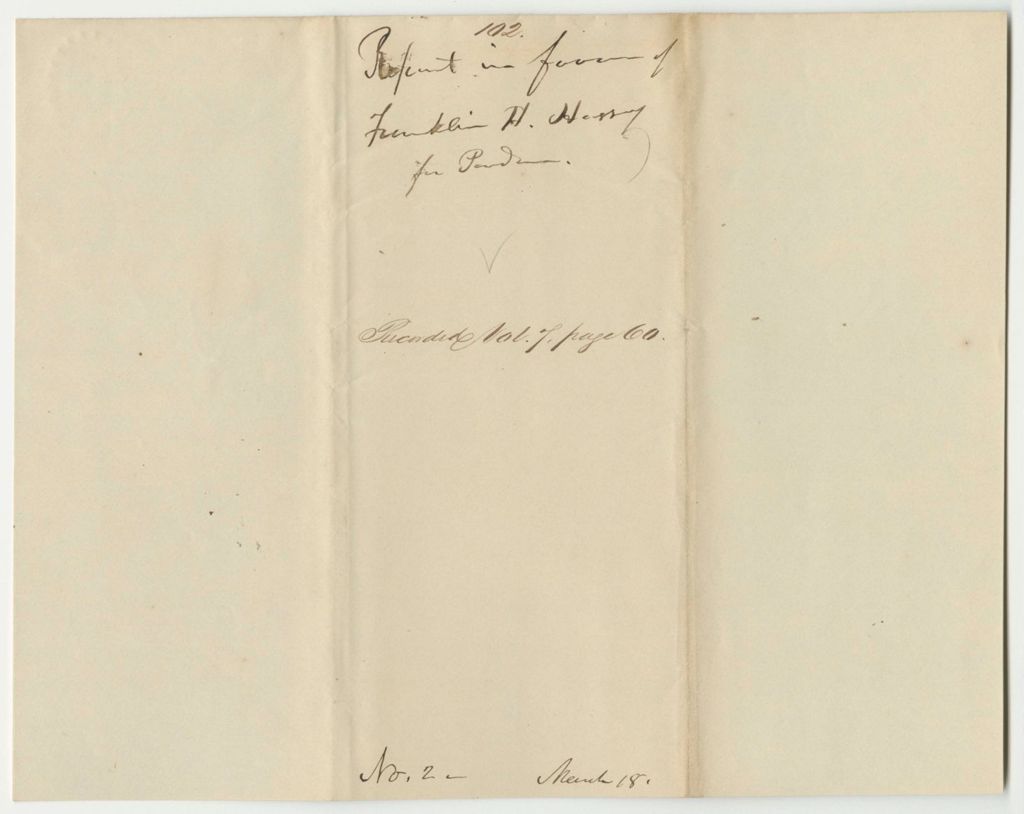 102.
Report in favor of
Franklin H. Hussey
for Pardon.
Recorded Vol. 7. page 60.
No. 2 - March 18.